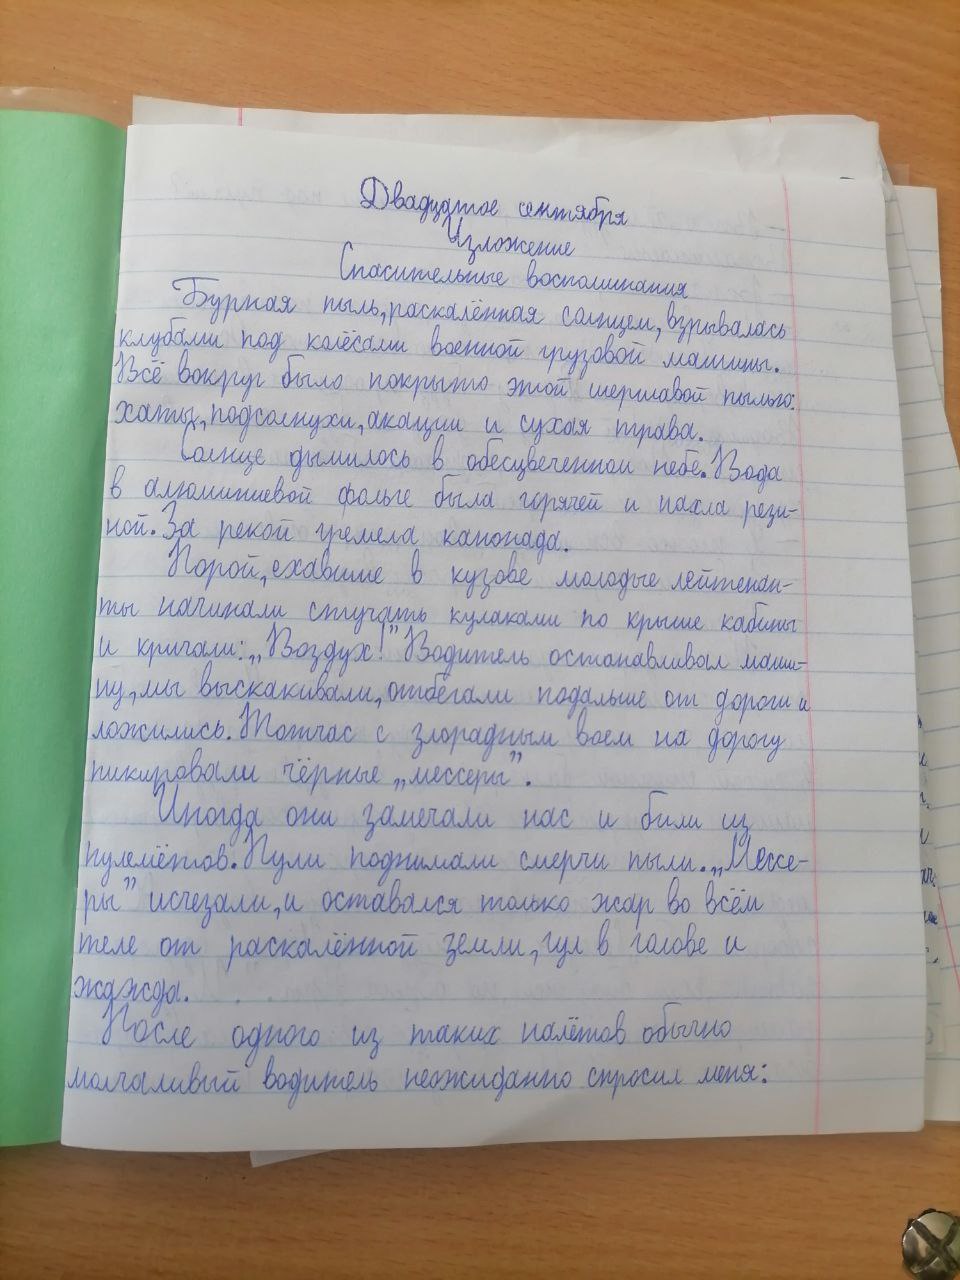 Двадцатое сентября
Изложение
Спасительные воспоминания
Бурная пыль, раскалённая солнцем, взрывалась
клубами под колёсами военной грузовой машины.
Всё вокруг было покрыто этой шершавой пылью:
хаты, подсолнухи, акации и сухая трава.
Солнце дымилось в обесцвеченном небе. Вода
в алюминиевой фольге была горячей и пахла рези-
ной. За рекой гремела канонада.
Порой, ехавшие в кузове молодые лейтенан-
ты начинали стучать кулаками по крыше кабины
и кричали: „Воздух!" Водитель останавливал маши-
ну, мы выскакивали, отбегали подальше от дороги и
ложились. Тотчас с злорадным воем на дорогу
пикировали чёрные „мессеры".
Иногда они замечали нас и били из
пулемётов. Пули поднимали смерчи пыли. „Мессе-
ры" исчезали, и оставался только жар во всём
теле от раскалённой земли, гул в голове и
жажда.
После одного из таких налётов обычно
молчаливый водитель неожиданно спросил меня: